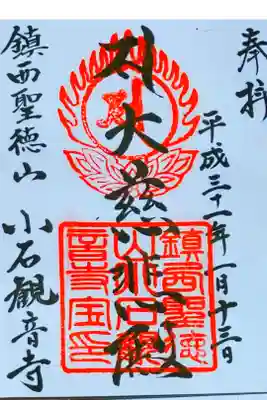 奉拝
平成三十一年一月十三日
大慈悲殿
鎮西聖徳
山小石觀
音寺宝印
鎮西聖徳山
小石觀音寺